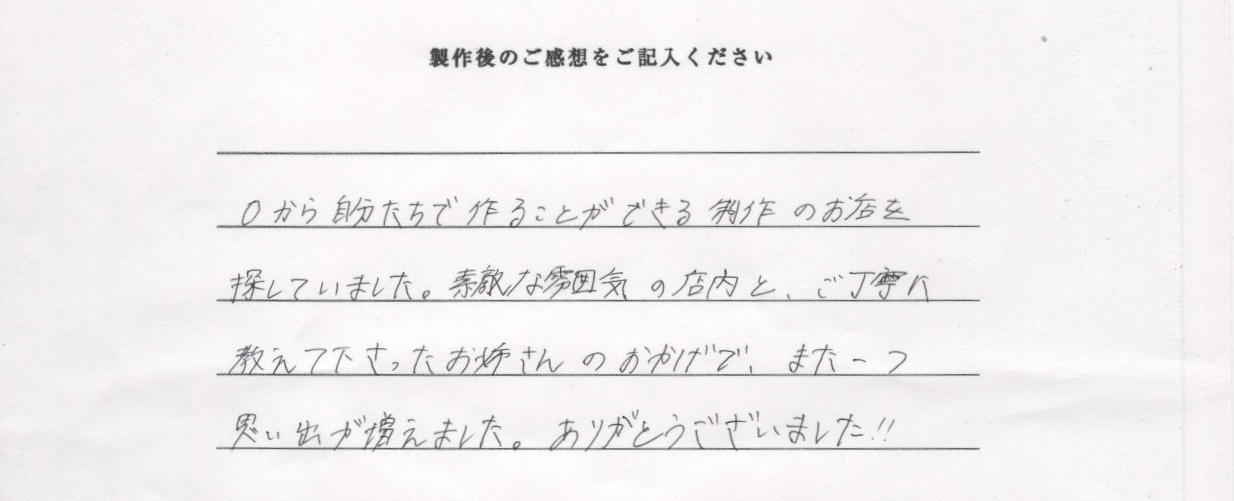 製作後のご感想をご記入ください
0から自分たちで作ることができる制作のお店を
探していました。素敵な雰囲気の店内と、ご丁寧に
教えて下さったお姉さんのおかげで、また一つ
思い出が増えました。ありがとうございました!!